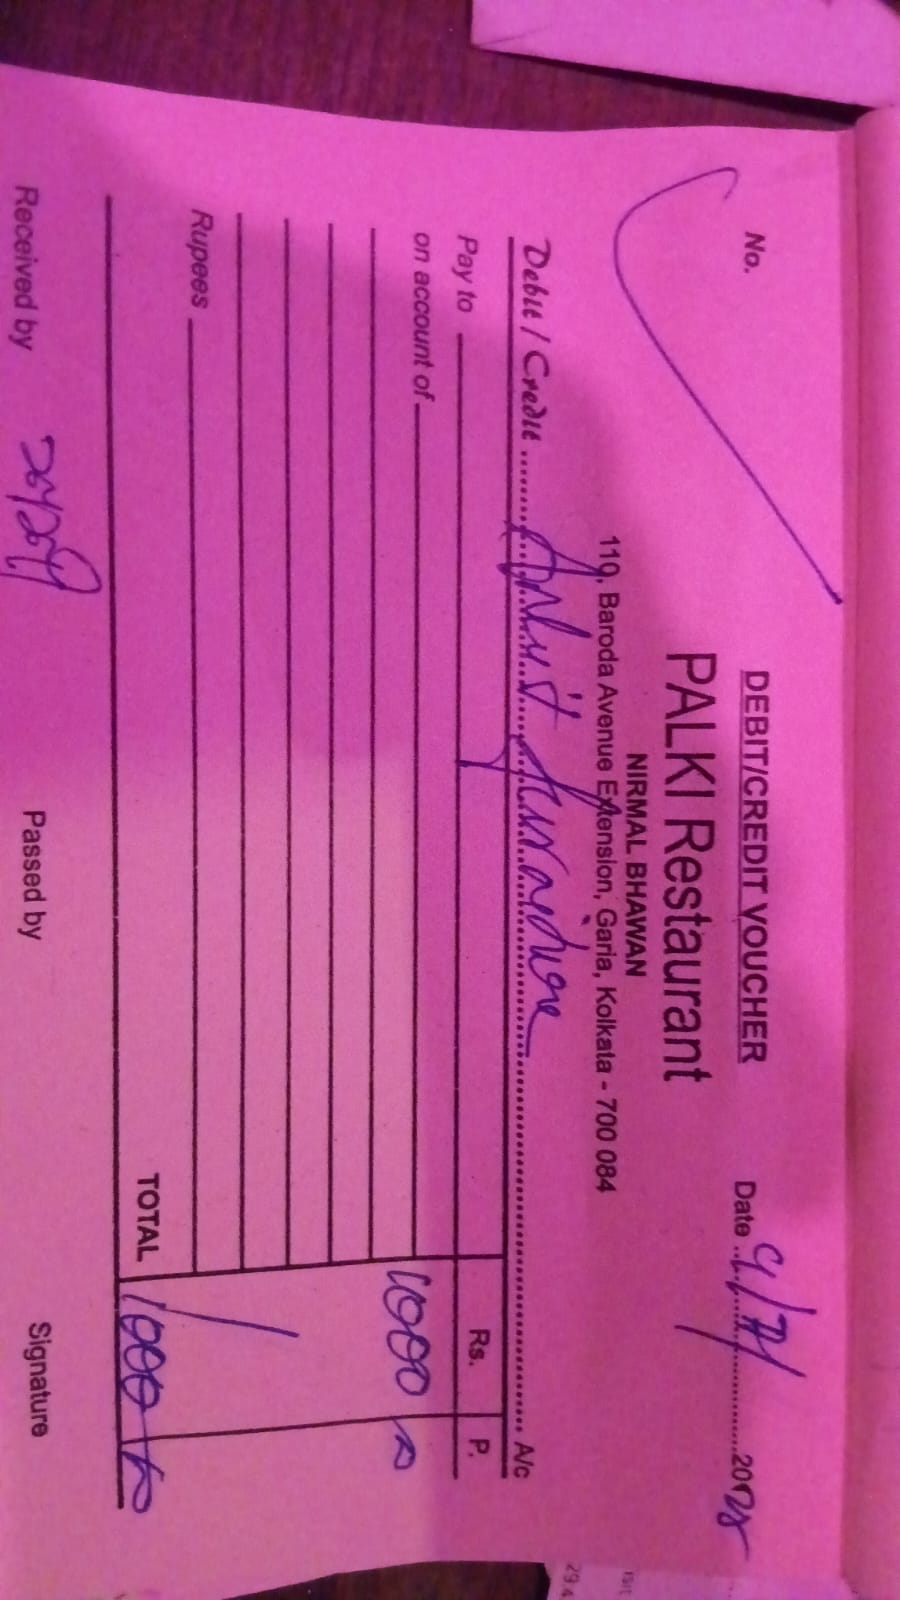 No.
DEBIT/CREDIT VOUCHER
Date 9/7/ 2025
PALKI Restaurant
NIRMAL BHAWAN
110, Baroda Avenue Extension, Garia, Kolkata - 700 084
Debit / Credit .......... A/c
Rs. P.
Pay to
on account of 1000
Rupees
TOTAL 1000
Received by Passed by Signature